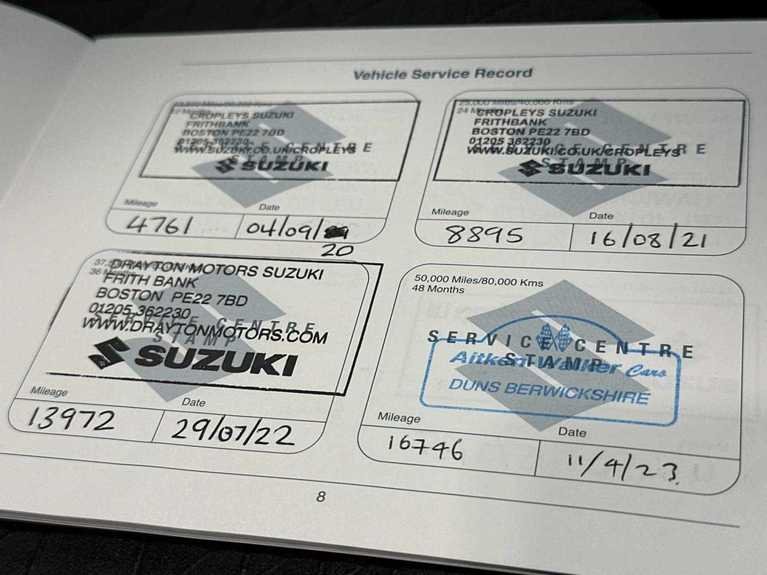 Vehicle Service Record
CROPLEYS SUZUKI
FRITHBANK
BOSTON PE22 7BD
01205 362230
WWW.SUZUKI.CO.UK/CROPLEYS
SUZUKI
Mileage
Date
4761
04/09/
20
25,000 Miles/40,000 Kms
24 Months
CROPLEYS SUZUKI
FRITHBANK
BOSTON PE22 7BD
01205 362230
WWW.SUZUKI.CO.UK/CROPLEYS
STAMP
SUZUKI
Mileage
Date
8895
16/08/21
DRAYTON MOTORS SUZUKI
FRITH BANK
BOSTON PE22 7BD
01205 362230
SERVICE CENTRE
WWW.DRAYTONMOTORS.COM
STAMP
SUZUKI
Mileage
Date
13972
29/07/22
50,000 Miles/80,000 Kms
48 Months
SERVICE CENTRE
STAMP
Aitken Walker Cars
DUNS BERWICKSHIRE
Mileage
Date
16746
11/4/23
8